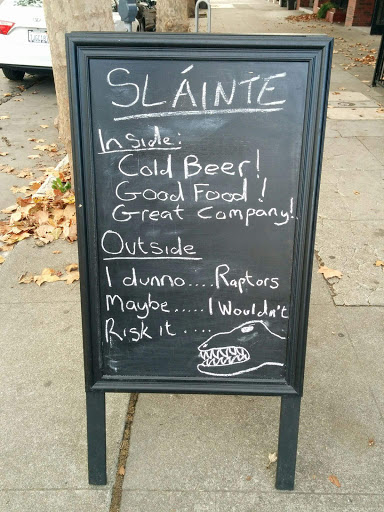 SLÁINTE
Inside:
Cold Beer!
Good Food!
Great Company!
Outside
I dunno....Raptors
Maybe.....I Wouldn't
Risk it....